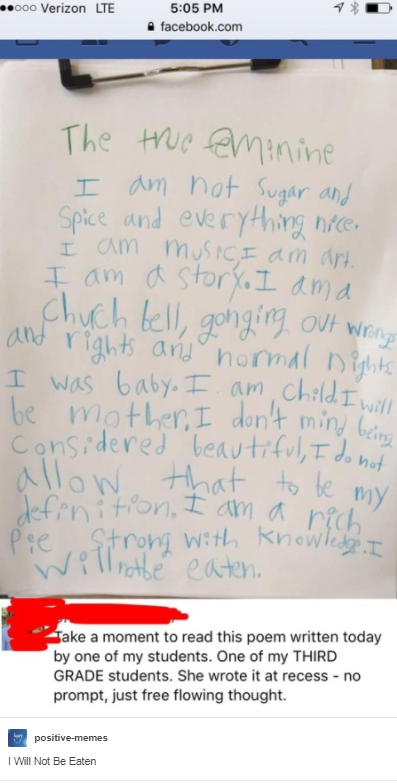 Verizon LTE 5:05 PM
facebook.com
The true feminine
I am not sugar and
Spice and everything nice.
I am music, I am art.
I am a story. I am a
church bell, gonging out wrongs
and rights and normal nights
I was baby. I am child. I will
be mother. I don't mind being
considered beautiful, I do not
allow that to be my
definition. I am a rich
Pie strong with knowledge. I
will not be eaten.
Take a moment to read this poem written today
by one of my students. One of my THIRD
GRADE students. She wrote it at recess - no
prompt, just free flowing thought.
positive-memes
I Will Not Be Eaten